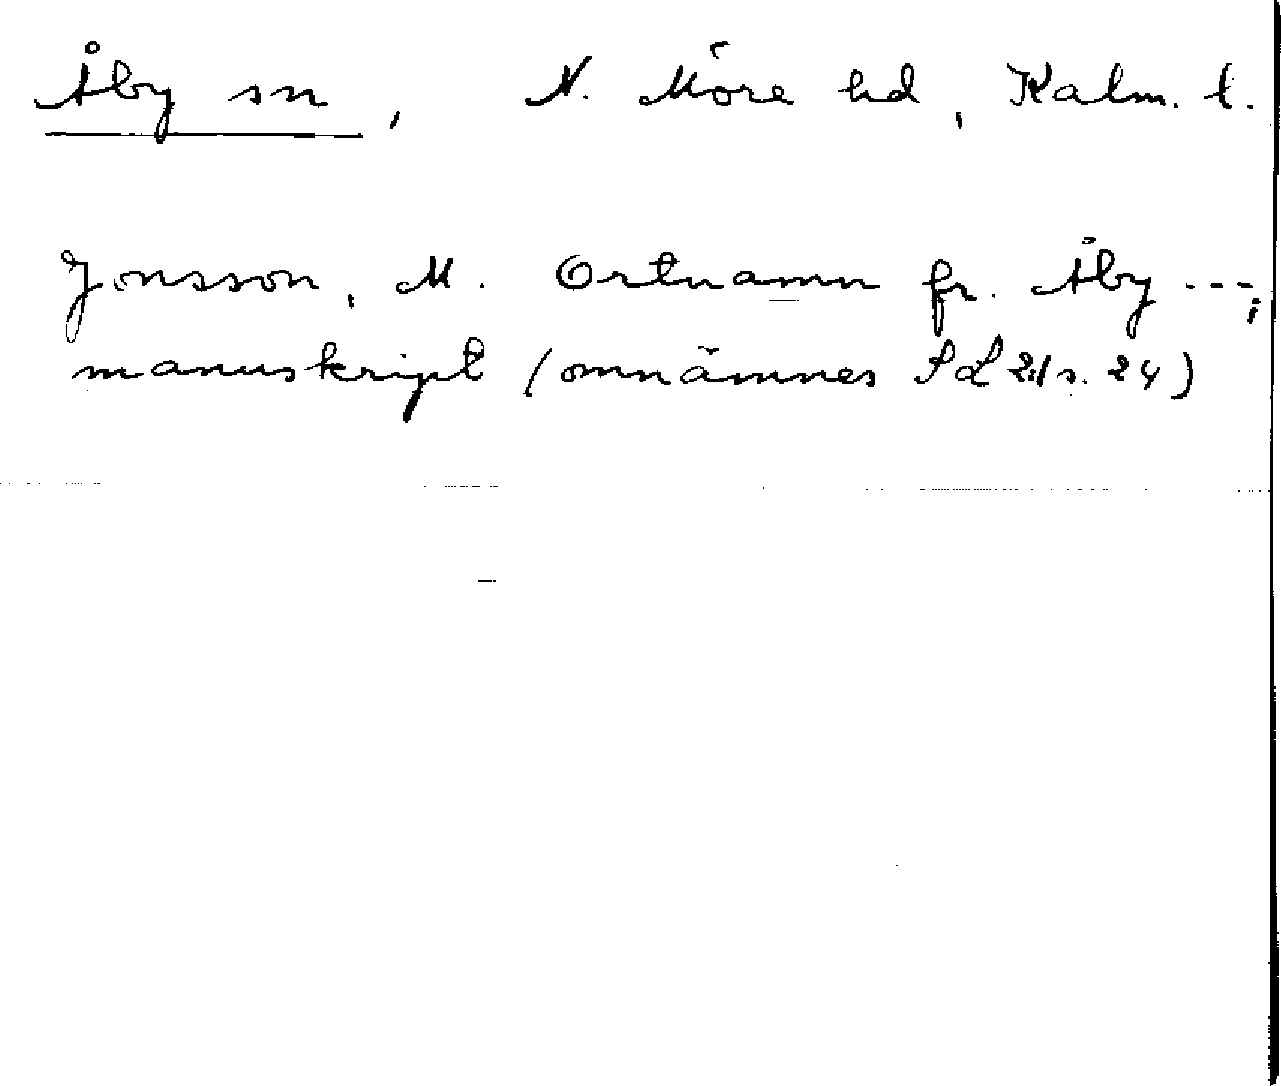 Åby sn, N. Möre hd, Kalm. l.
Jonsson, M. Ortnamn fr. Åby ---;
manuskript (omnämnes SL 21 s. 24)